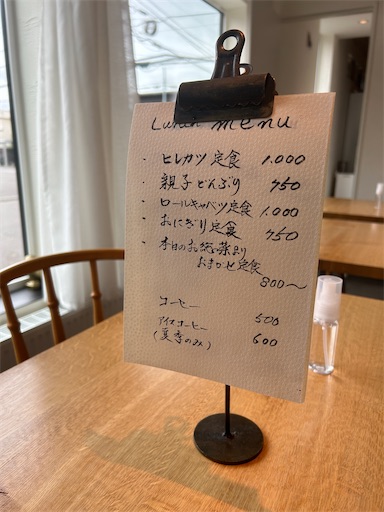 Lunch menu
・ヒレカツ定食 1.000
・親子どんぶり 750
・ロールキャベツ定食 1.000
・おにぎり定食 750
・本日のお総菜より
おまかせ定食
800〜
コーヒー 500
アイスコーヒー
(夏季のみ) 600